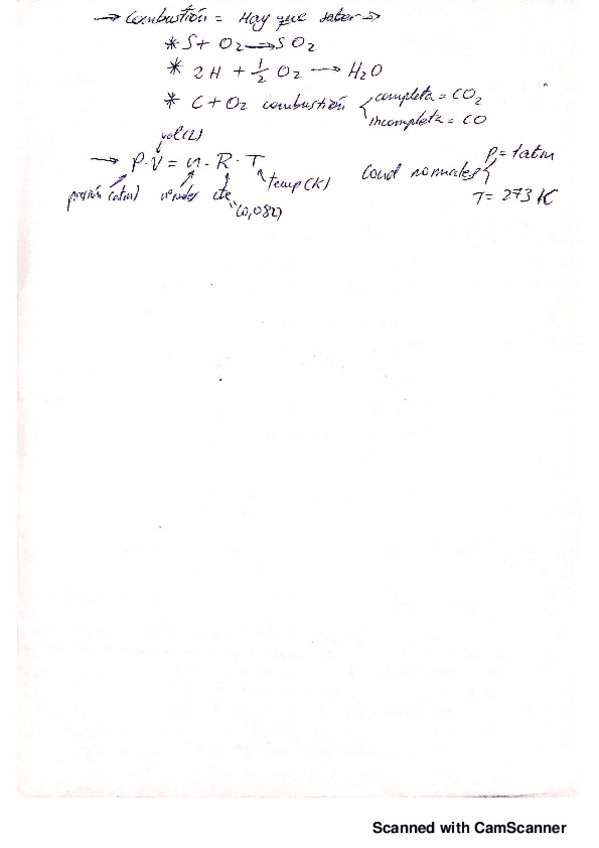 → Combustión = Hay que saber →
* S + O2 → SO2
* 2H + 1/2 O2 → H2O
* C + O2 combustión completa = CO2
incompleta = CO
vol (L)
→ P·V = n·R·T
presión (atm) nº moles cte (0,082) temp (K)
Cond normales P = 1 atm
T = 273 K
Scanned with CamScanner